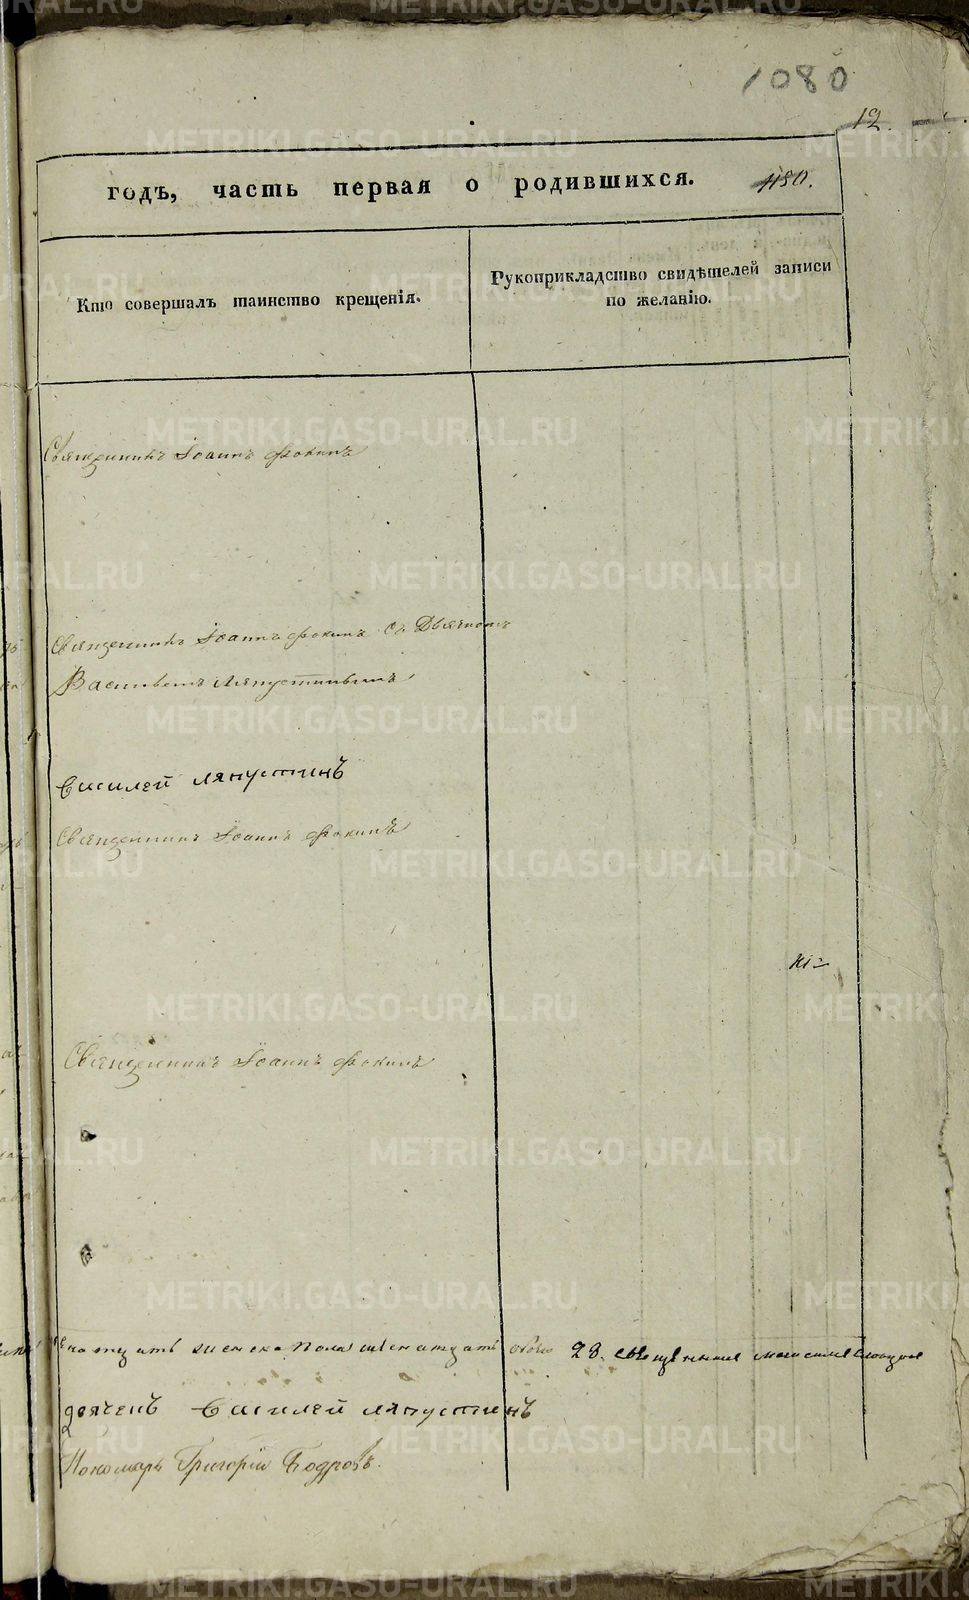 1080
12.
годъ, часть первая о родившихся.
Кто совершалъ таинство крещенія.
Рукоприкладство свидѣтелей записи
по желанію.
Священникъ Іоаннъ Фокинъ
Священникъ Іоаннъ Фокинъ съ Дьячкомъ
Васильемъ Ляпустинымъ
Василей Ляпустинъ
Священникъ Іоаннъ Фокинъ
Священникъ Іоаннъ Фокинъ
женска пола обоего 28.
дьячекъ Василей Ляпустинъ
Пономарь Григорій Бодровъ.
METRIKI.GASO-URAL.RU